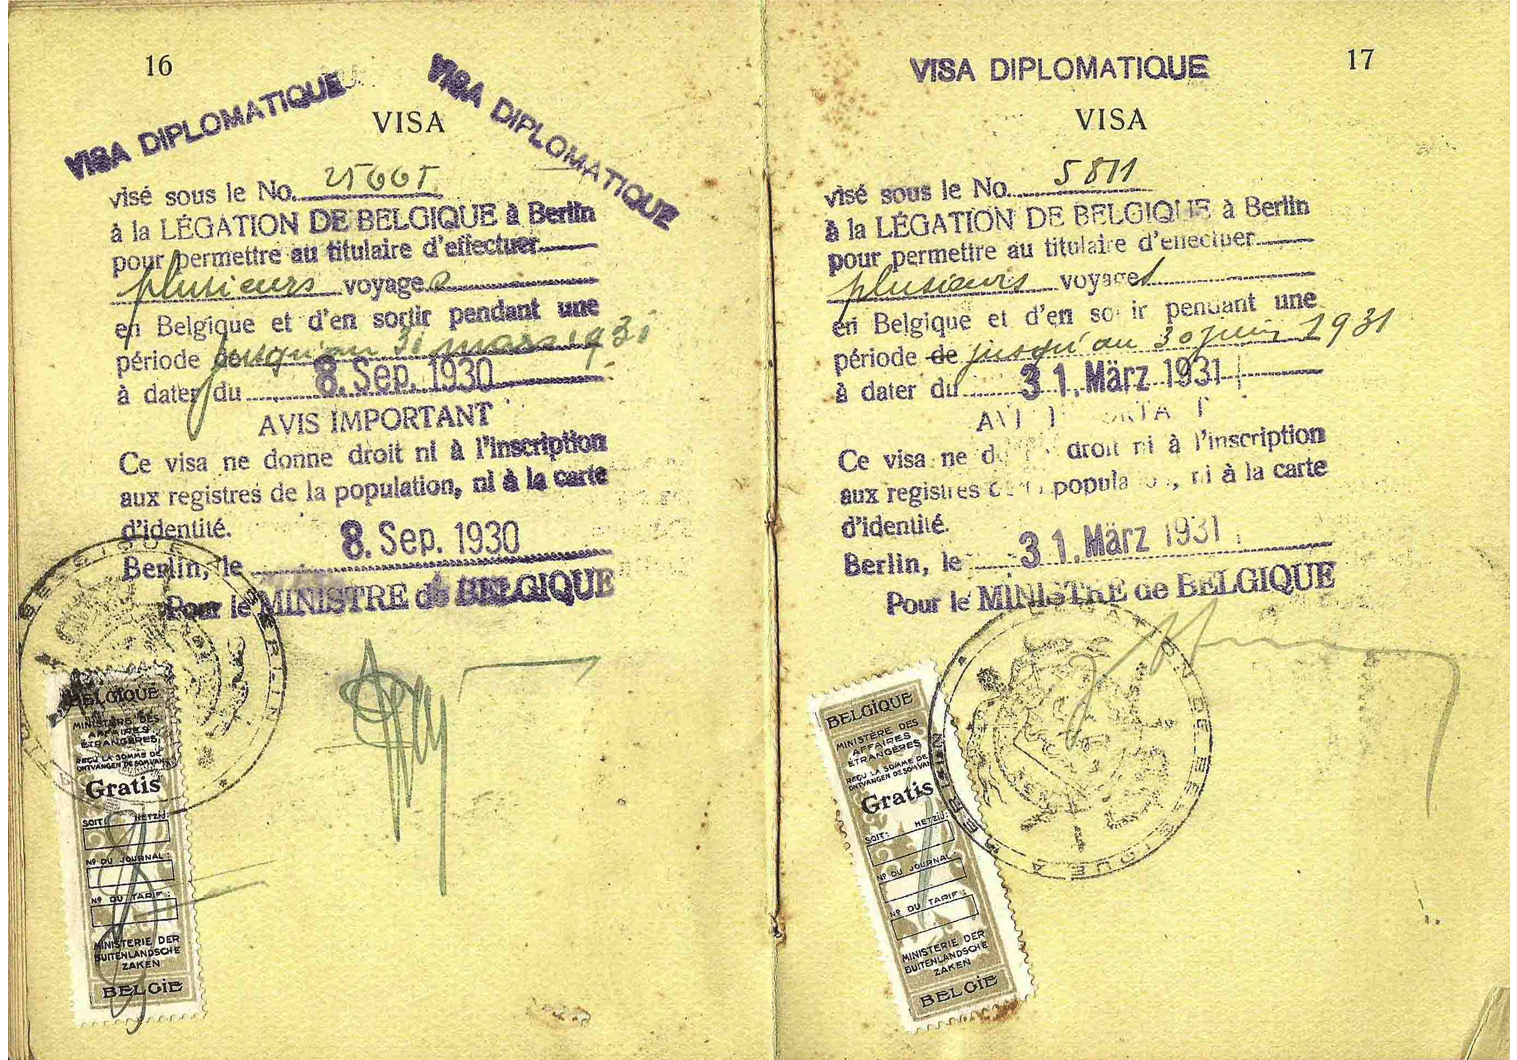 16
VISA DIPLOMATIQUE
VISA DIPLOMATIQUE
VISA
visé sous le No.
à la LÉGATION DE BELGIQUE à Berlin
pour permettre au titulaire d'effectuer
plusieurs voyages
en Belgique et d'en sortir pendant une
période jusqu'au 31 mars 1931
à dater du 8. Sep. 1930
AVIS IMPORTANT
Ce visa ne donne droit ni à l'inscription
aux registres de la population, ni à la carte
d'identité.
Berlin, le 8. Sep. 1930
Pour le MINISTRE de BELGIQUE
BELGIQUE
MINISTÈRE DES
AFFAIRES
ÉTRANGÈRES
REÇU LA SOMME DE
ONTVANGEN DE SOM VAN
Gratis
SOIT: HETZIJ:
Nº DU JOURNAL:
Nº DU TARIF:
MINISTERIE DER
BUITENLANDSCHE
ZAKEN
BELGIË
17
VISA DIPLOMATIQUE
VISA
visé sous le No. 5811
à la LÉGATION DE BELGIQUE à Berlin
pour permettre au titulaire d'effectuer
plusieurs voyages
en Belgique et d'en sortir pendant une
période de jusqu'au 30 juin 1931
à dater du 31. März 1931
AVIS IMPORTANT
Ce visa ne droit ni à l'inscription
aux registres population, ni à la carte
d'identité.
Berlin, le 31. März 1931
Pour le MINISTRE de BELGIQUE
LÉGATION DE BELGIQUE A BERLIN
BELGIQUE
MINISTÈRE DES
AFFAIRES
ÉTRANGÈRES
REÇU LA SOMME DE
ONTVANGEN DE SOM VAN
Gratis
SOIT: HETZIJ:
Nº DU JOURNAL:
Nº DU TARIF:
MINISTERIE DER
BUITENLANDSCHE
ZAKEN
BELGIË